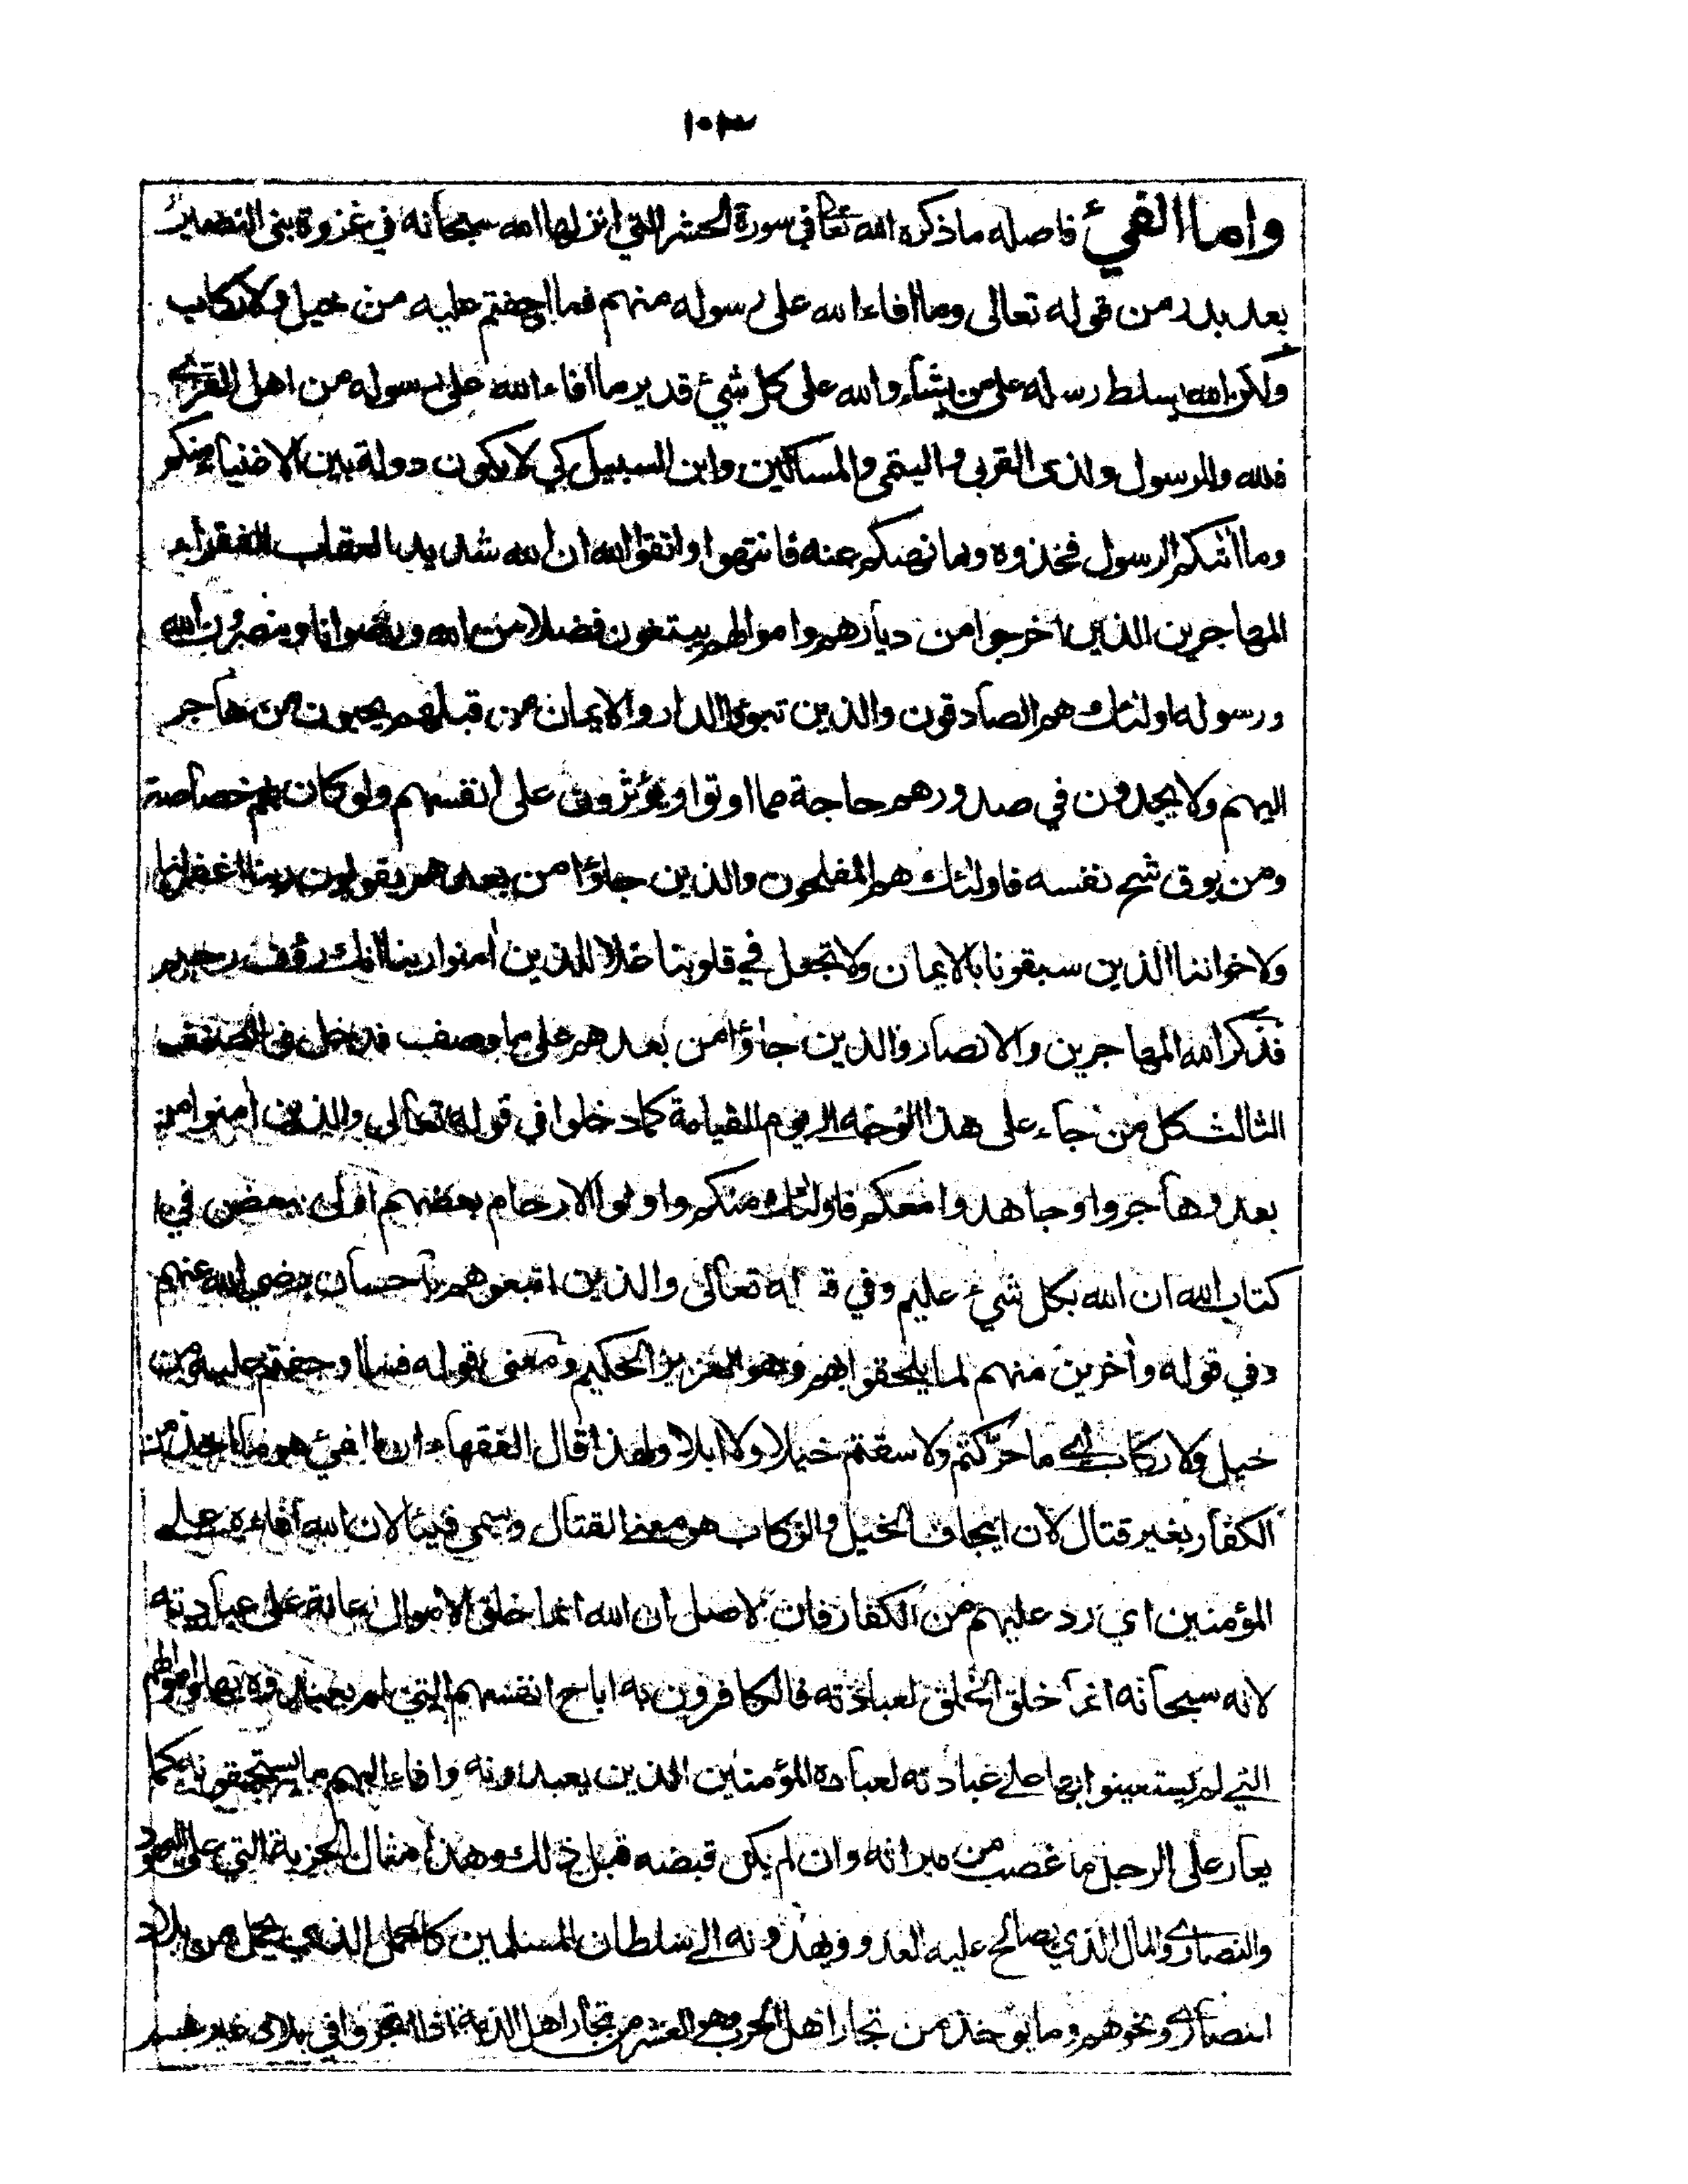 ١٠٣
واما الفيئ فاصله ما ذكره الله تعا في سورة الحشر التي انزلها الله سبحانه في غزوة بني النضير
بعد بدر من قوله تعالى وما افاء الله على رسوله منهم فما اوجفتم عليه من خيل ولا ركاب
ولكن الله يسلط رسله على من يشاء والله على كل شئ قدير ما افاء الله على رسوله من اهل القرى
فلله وللرسول ولذى القربى واليتمى والمساكين وابن السبيل كي لا يكون دولة بين الاغنياء منكم
وما اتكم الرسول فخذوه وما نهكم عنه فانتهوا واتقوا الله ان الله شديد العقاب للفقراء
المهاجرين الذين اخرجوا من ديارهم واموالهم يبتغون فضلا من الله ورضوانا وينصرون الله
ورسوله اولئك هم الصادقون والذين تبوؤا الدار والايمان من قبلهم يحبون من هاجر
اليهم ولا يجدون في صدورهم حاجة مما اوتوا ويؤثرون على انفسهم ولو كان بهم خصاصة
ومن يوق شح نفسه فاولئك هم المفلحون والذين جاؤا من بعدهم يقولون ربنا اغفر لنا
ولاخواننا الذين سبقونا بالايمان ولا تجعل في قلوبنا غلا للذين امنوا ربنا انك رؤف رحيم
فذكر الله المهاجرين والانصار والذين جاؤا من بعدهم على ما وصف فدخل في الصنف
الثالث كل من جاء على هذا الوجه الى يوم القيامة كما دخلوا في قوله تعالى والذين امنوا من
بعد وهاجروا وجاهدوا معكم فاولئك منكم واولوا الارحام بعضهم اولى ببعض في
كتاب الله ان الله بكل شئ عليم وفي قوله تعالى والذين اتبعوهم باحسان رضي الله عنهم
وفي قوله واخرين منهم لما يلحقوا بهم وهو العزيز الحكيم ومعنى قوله فما اوجفتم عليه من
خيل ولا ركاب اى ما حركتم ولا سقتم خيلا ولا ابلا ولهذا قال الفقهاء ان الفئ هو ما اخذ من
الكفار بغير قتال لان ايجاف الخيل والركاب هو معنى القتال وسمى فيئا لان الله افاءه على
المؤمنين اي رد عليهم من الكفار فان الاصل ان الله انما خلق الاموال اعانة على عبادته
لانه سبحانه انما خلق الخلق لعبادته فالكافرون به اباح انفسهم التي لم يعبدوه بها واموالهم
التي لم يستعينوا بها على عبادته لعباده المؤمنين الذين يعبدونه وافاء اليهم ما يستحقونه كما
يعار على الرجل ما غصب من ميراثه وان لم يكن قبضه قبل ذلك وهذا مثال الجزية التي على اليهود
والنصارى والمال الذي يصالح عليه العدو ويهدونه الى سلطان المسلمين كالحمل الذي يحمل من بلاد
النصارى ونحوهم وما يوخذ من تجار اهل الحرب وهو العشر من تجار اهل الذمة اذا اتجروا في بلاد غيرهم